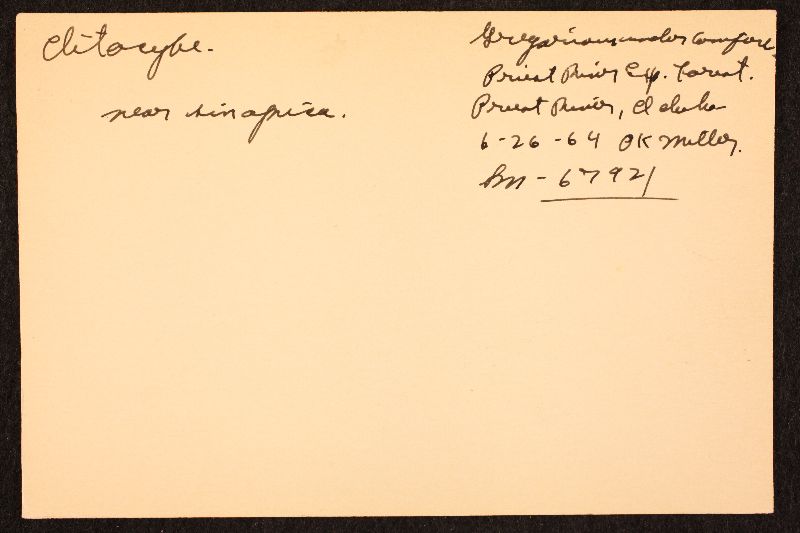 Clitocybe.
near sinopica.
Gregarious under conifers
Priest River Exp. Forest.
Priest River, Idaho
6-26-64 OK Miller.
Sm-67921